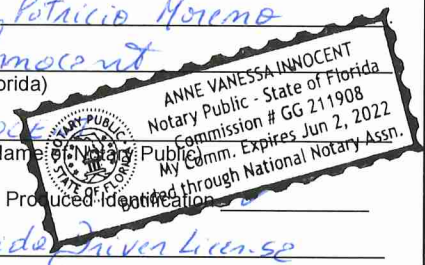 Patricio Moreno
nnocent
orida)
ANNE VANESSA INNOCENT
Notary Public - State of Florida
Commission # GG 211908
My Comm. Expires Jun 2, 2022
Bonded through National Notary Assn.
NOTARY PUBLIC
STATE OF FLORIDA
Name of Notary Public)
Produced Identification
ida Driver License